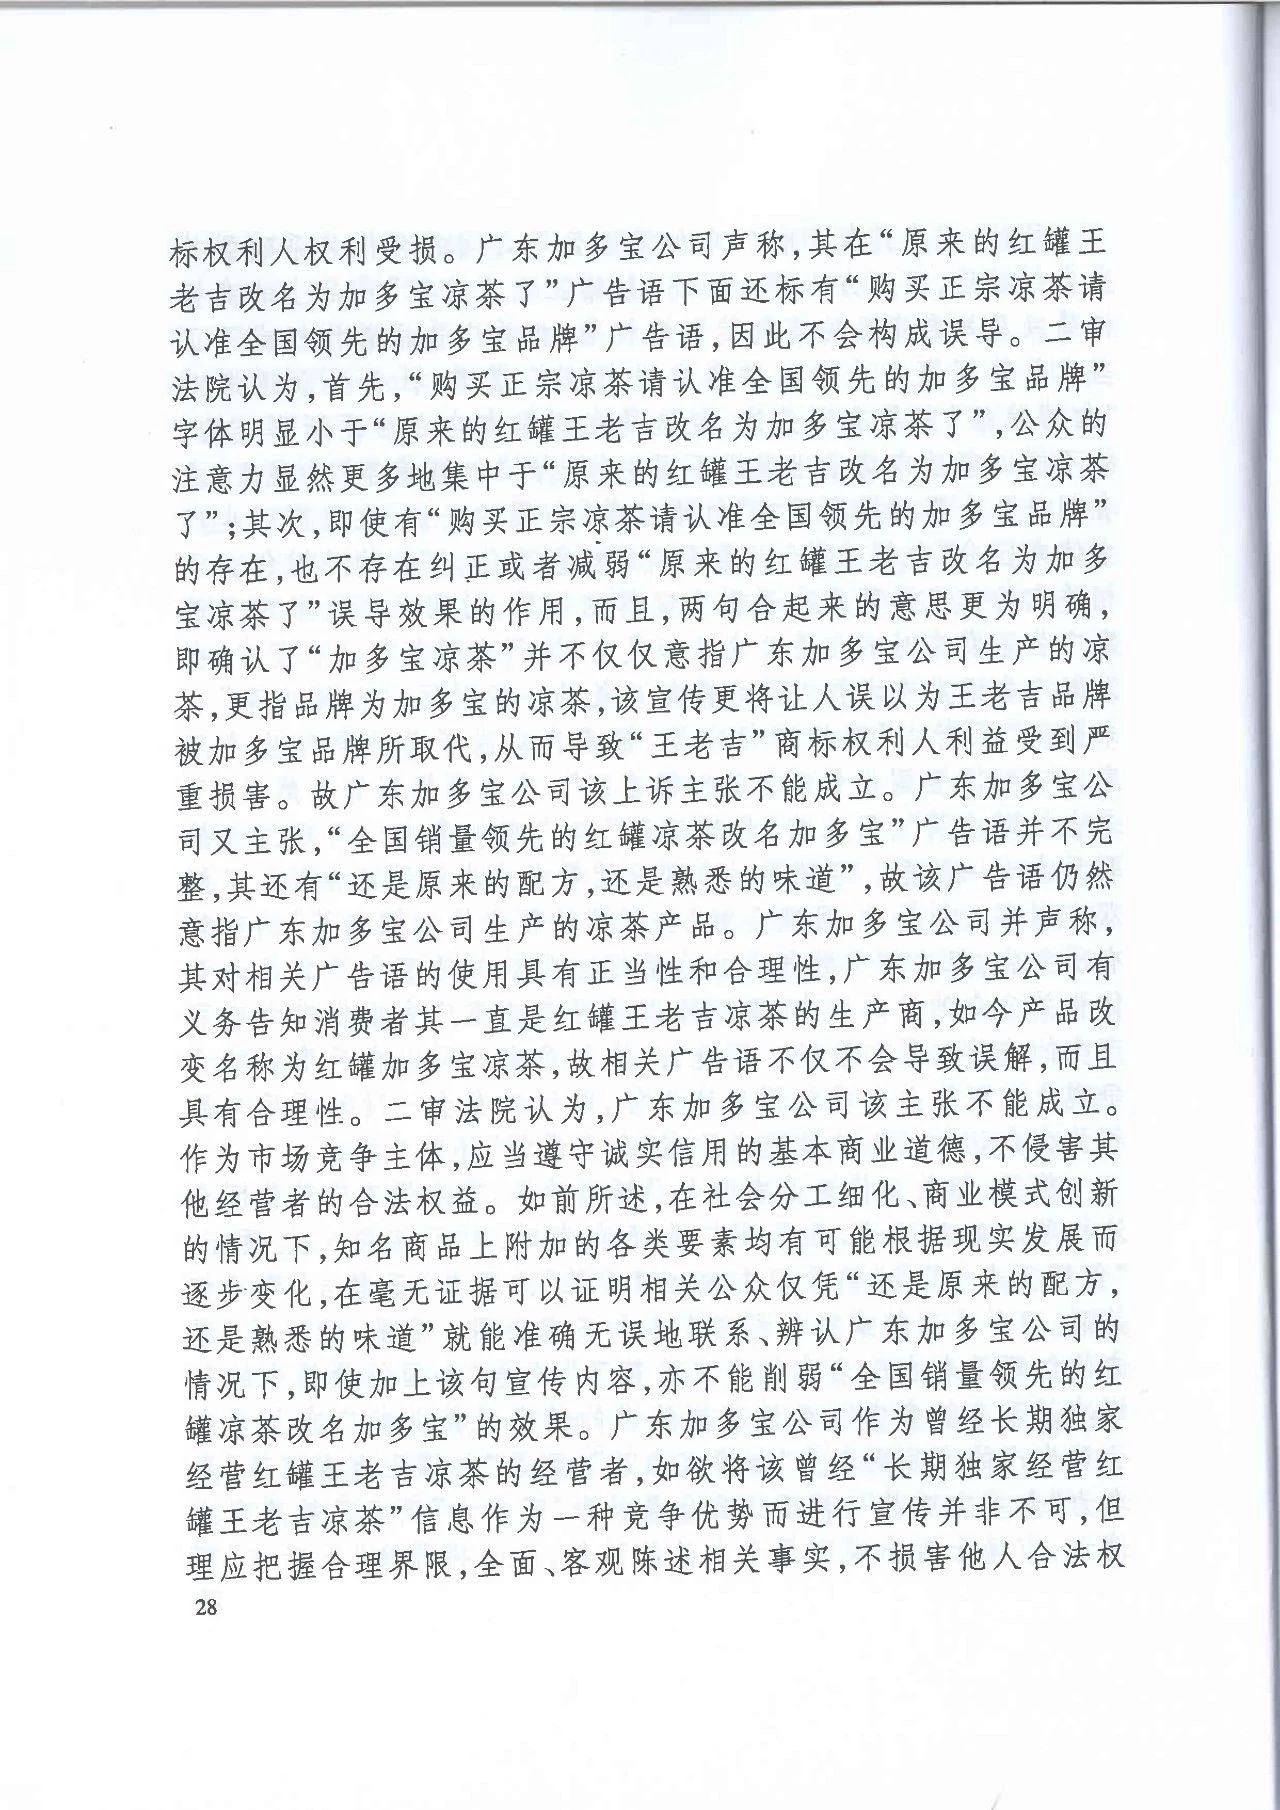 标权利人权利受损。广东加多宝公司声称,其在“原来的红罐王
老吉改名为加多宝凉茶了”广告语下面还标有“购买正宗凉茶请
认准全国领先的加多宝品牌”广告语,因此不会构成误导。二审
法院认为,首先,“购买正宗凉茶请认准全国领先的加多宝品牌”
字体明显小于“原来的红罐王老吉改名为加多宝凉茶了”,公众的
注意力显然更多地集中于“原来的红罐王老吉改名为加多宝凉茶
了”;其次,即使有“购买正宗凉茶请认准全国领先的加多宝品牌”
的存在,也不存在纠正或者减弱“原来的红罐王老吉改名为加多
宝凉茶了”误导效果的作用,而且,两句合起来的意思更为明确,
即确认了“加多宝凉茶”并不仅仅意指广东加多宝公司生产的凉
茶,更指品牌为加多宝的凉茶,该宣传更将让人误以为王老吉品牌
被加多宝品牌所取代,从而导致“王老吉”商标权利人利益受到严
重损害。故广东加多宝公司该上诉主张不能成立。广东加多宝公
司又主张,“全国销量领先的红罐凉茶改名加多宝”广告语并不完
整,其还有“还是原来的配方,还是熟悉的味道”,故该广告语仍然
意指广东加多宝公司生产的凉茶产品。广东加多宝公司并声称,
其对相关广告语的使用具有正当性和合理性,广东加多宝公司有
义务告知消费者其一直是红罐王老吉凉茶的生产商,如今产品改
变名称为红罐加多宝凉茶,故相关广告语不仅不会导致误解,而且
具有合理性。二审法院认为,广东加多宝公司该主张不能成立。
作为市场竞争主体,应当遵守诚实信用的基本商业道德,不侵害其
他经营者的合法权益。如前所述,在社会分工细化、商业模式创新
的情况下,知名商品上附加的各类要素均有可能根据现实发展而
逐步变化,在毫无证据可以证明相关公众仅凭“还是原来的配方,
还是熟悉的味道”就能准确无误地联系、辨认广东加多宝公司的
情况下,即使加上该句宣传内容,亦不能削弱“全国销量领先的红
罐凉茶改名加多宝”的效果。广东加多宝公司作为曾经长期独家
经营红罐王老吉凉茶的经营者,如欲将该曾经“长期独家经营红
罐王老吉凉茶”信息作为一种竞争优势而进行宣传并非不可,但
理应把握合理界限,全面、客观陈述相关事实,不损害他人合法权
28